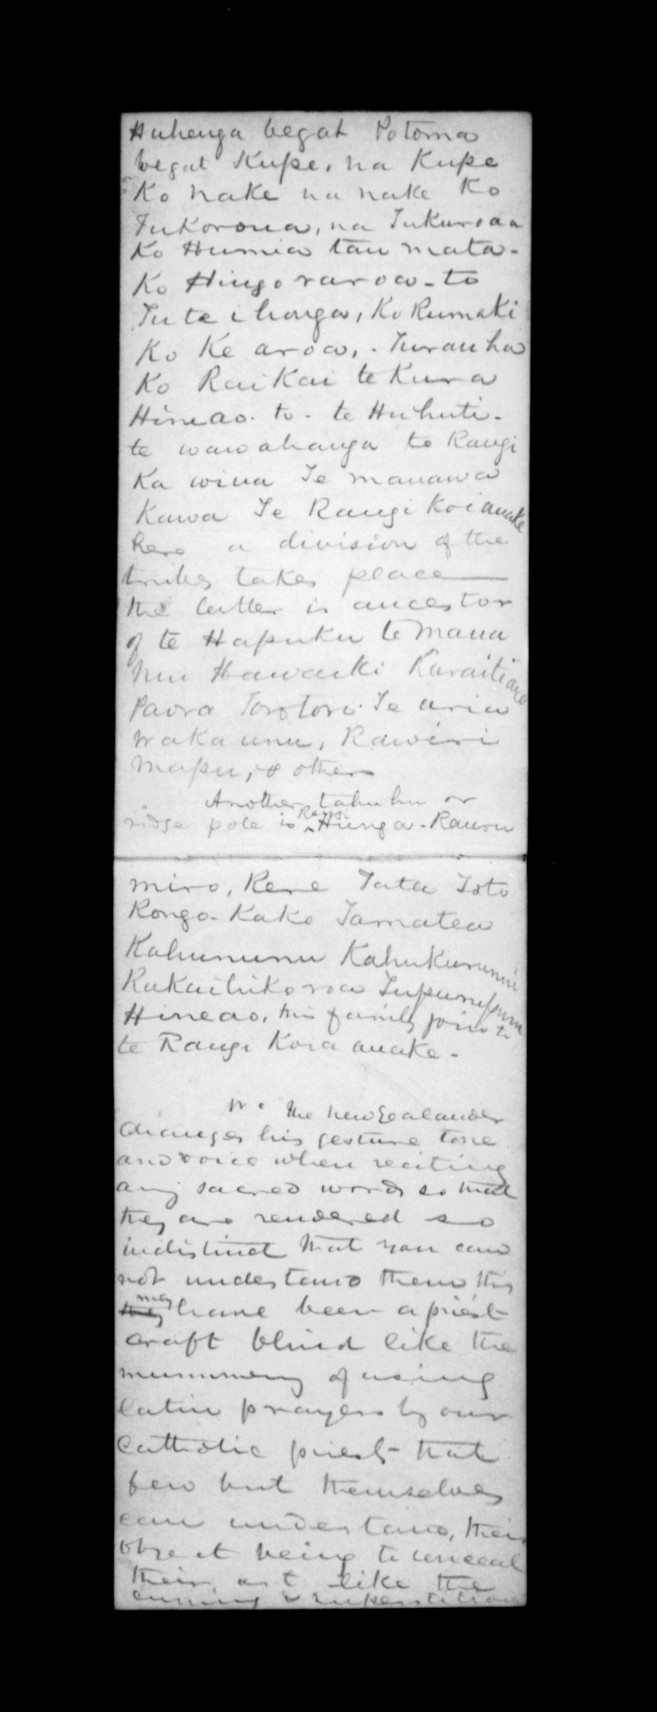 Huhenga begat Potoma
begat Kupe, na Kupe
Ko nake na nake Ko
Tukoroua, na Tukuroaa
Ko Humia tau mata-
Ko Hingoraroa - to
Tu te ihonga, Ko Rumaki
Ko Ke aroa, . Turauha
Ko Raikai te Kura
Hineao. to. te Huhuti.
te wawahanga te Rangi
Ka wiua Te manawa
Kawa Te Rangi Koianake
here a division of the
tribes takes place
the latter is ancestor
of te Hapuku te Mana
hui Hawaiki Karaitiana
Paora Torotoro. Te aria
Wakaunu, Rawiri
Mapu, & others
Another tahuhu or
ridge pole is Rangi Hunga - Rauru
miro, Rere Tata Toto
Rongo-Kako Tamatea
Kahununu Kahukuranui
Rakaihikoroa Tupurupuru
Hineao, this family joins to
te Rangi Koia anake -
The New Zealander
changes his gesture tone
and voice when reciting
any sacred words so that
they are rendered so
indistinct that you can
not understand them this
they may have been a priest
craft blind like the
mummery of using
latin prayers by our
Catholic priests that
few but themselves
can understand, their
object being to conceal
their art like the
cunning & superstitious